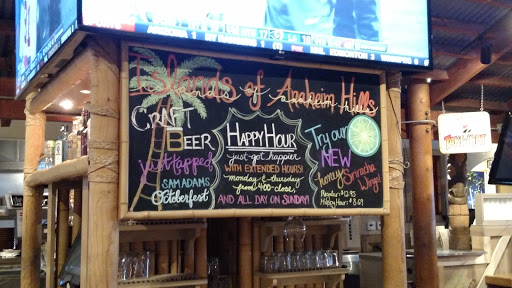 Islands of Anaheim Hills
CRAFT
BEER
just tapped
SAM ADAMS
Octoberfest
HAPPY HOUR
just got happier
WITH EXTENDED HOURS!
monday & thursday
from 4:00-close
AND ALL DAY ON SUNDAY!
Try our
NEW
honey
Sriracha
Wings!
Regular: $12.95
Happy Hour: $8.69